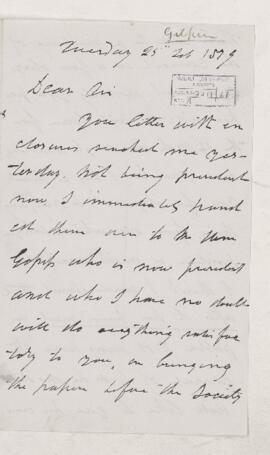 Gilpin
Tuesday 25th Feb 1879
Dear Sir
Your letter with en
closures reached me yes-
terday. Not being president
now, I immediately hand
ed them over to Mr
who is now president
and who I have no doubt
will do anything satisfac
tory to you, in bringing
the papers before the Society